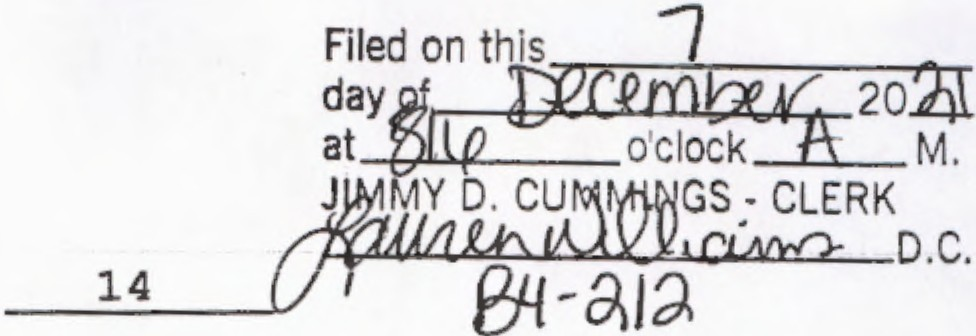 Filed on this 7
day of December 2021
at 816 o'clock A M.
JIMMY D. CUMMINGS - CLERK
Lauren Williams D.C.
14
B4-212